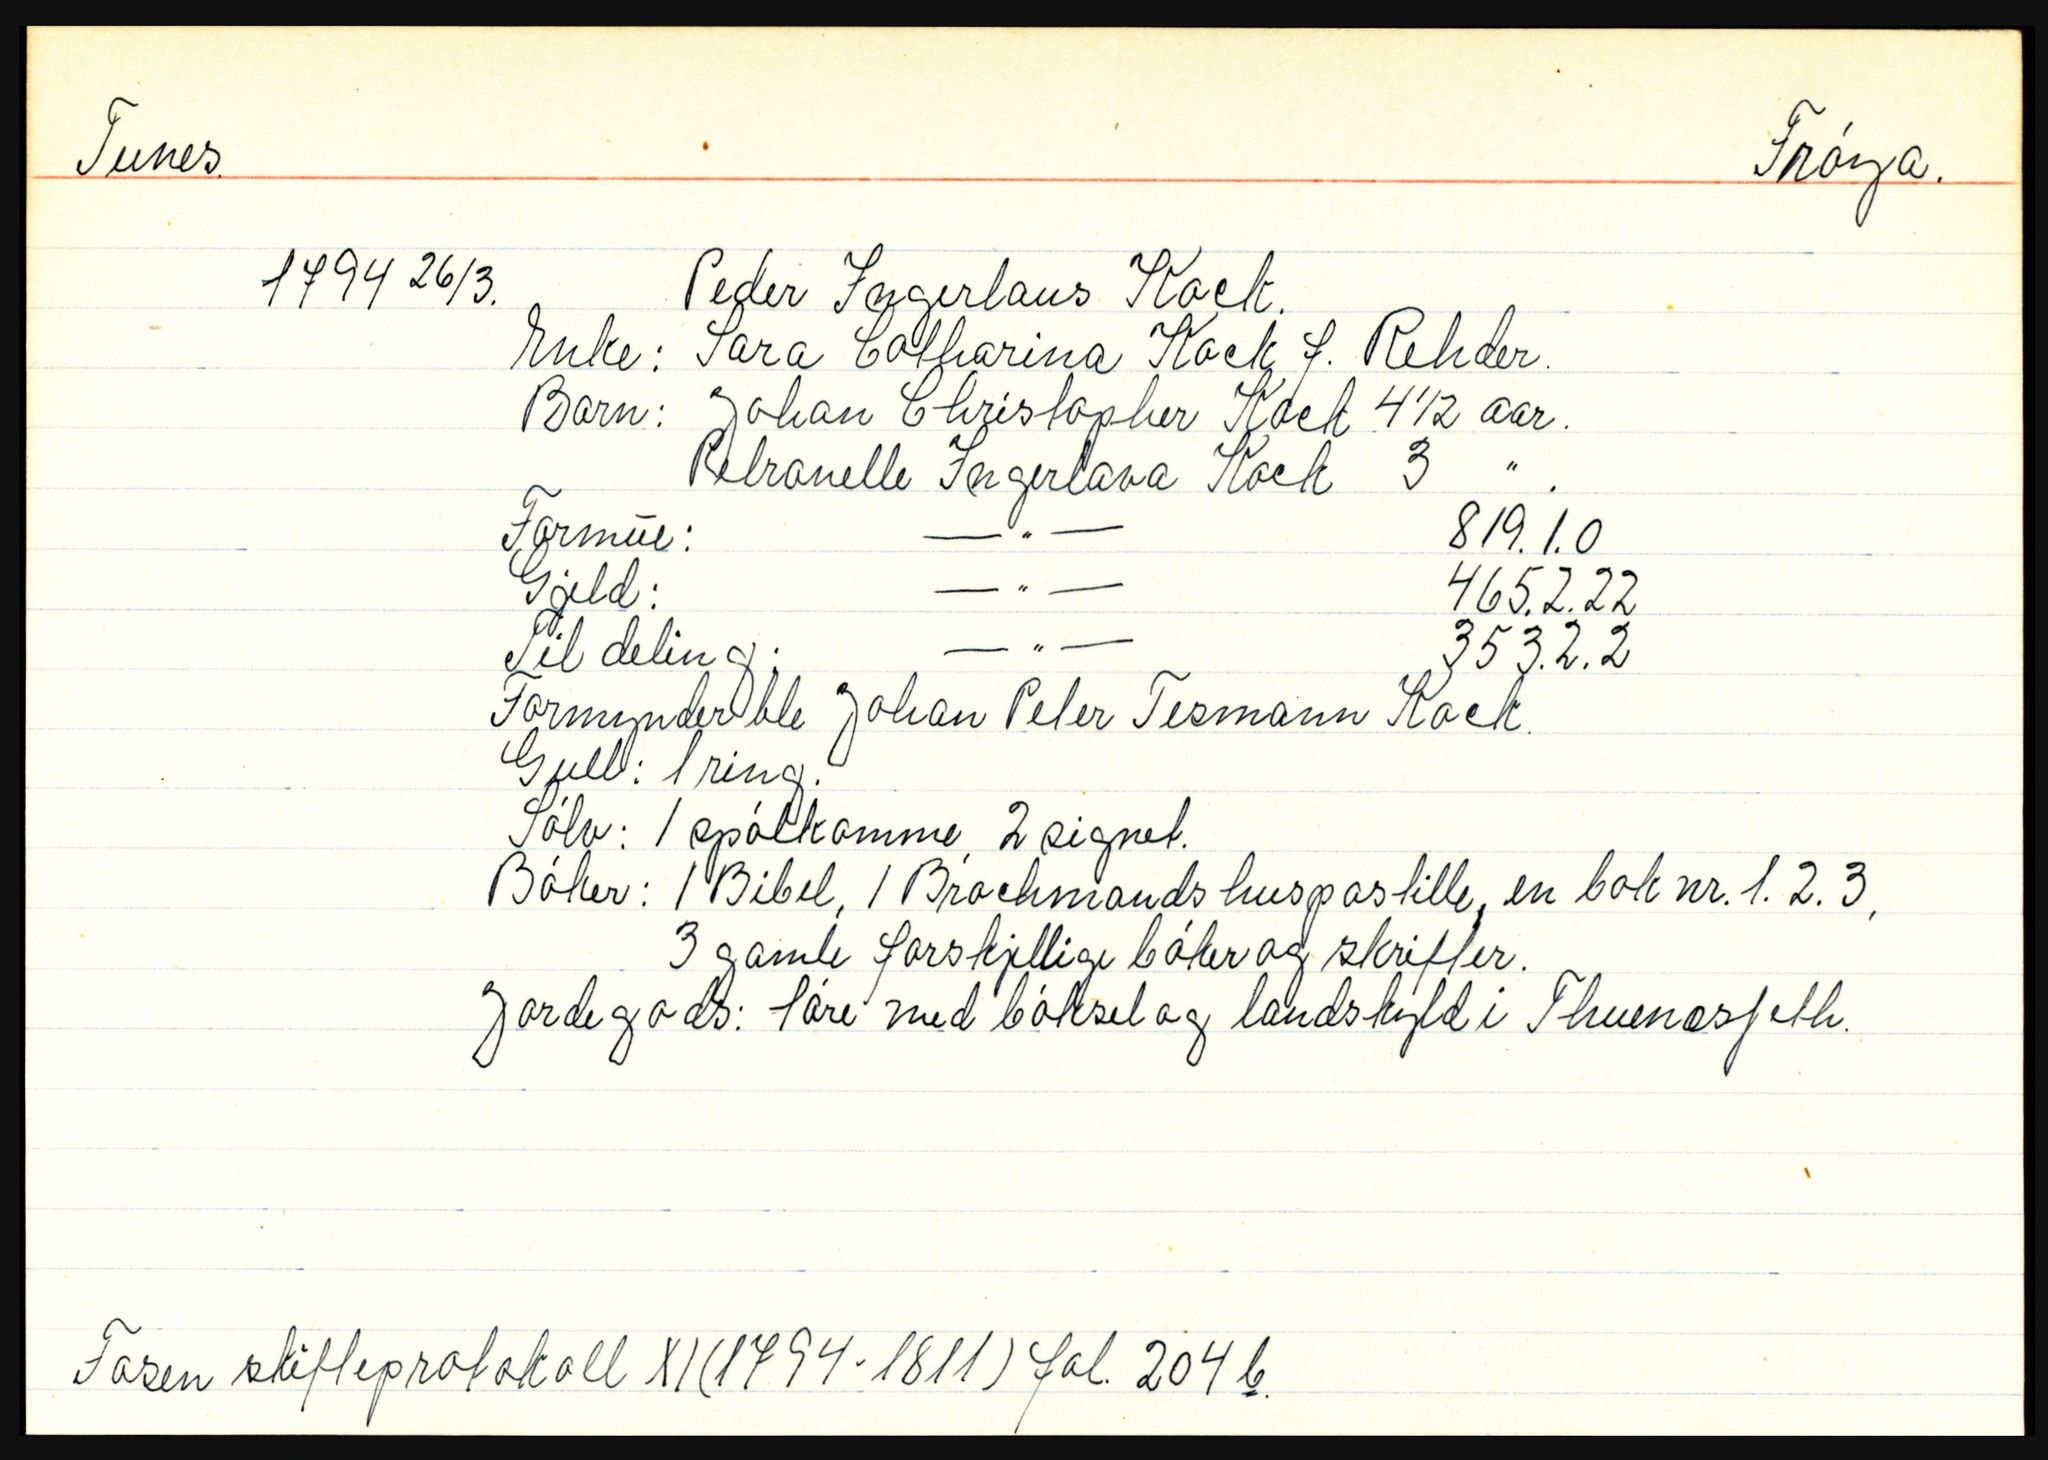 Tunes. Fröya.
1794 26/3. Peder Ingerlaus Kock.
Enke: Sara Catharina Kock f. Rehder.
Barn: Johan Christopher Kock 4 1/2 aar.
Petronelle Ingerlava Kock 3 " .
Formüe: — " — 819.1.0
Gjeld: — " — 465.2.22
Til deling: — " — 353.2.2
Formynder ble Johan Peter Tesmann Kock.
Gull: 1 ring.
Sölv: 1 spölkomme, 2 signet.
Böker: 1 Bibel, 1 Brochmands huspostille, en bok nr. 1. 2. 3,
3 gamle forskjellige böker og skrifter.
Jordegods: 1 öre med böksel og landskyld i Thuenæsfeth.
Fosen skifteprotokoll XI (1794-1811) fol. 204 b.